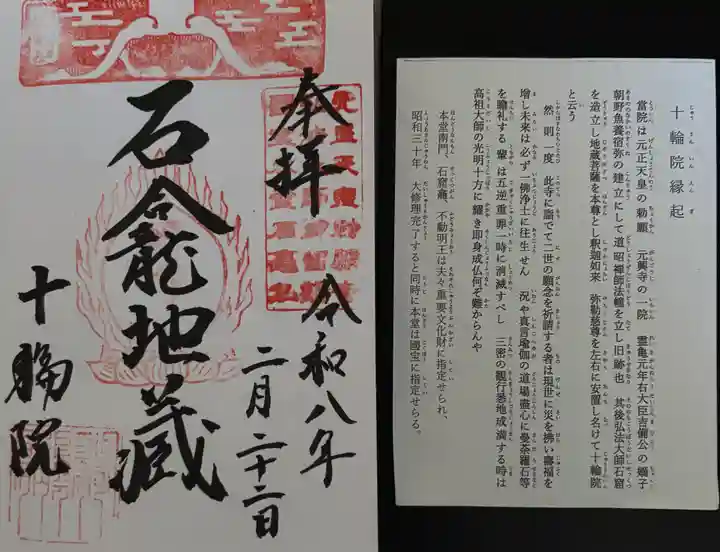 奉拝
令和八年
一月二十二日
石龕地蔵
十輪院
十輪院縁起
當院は元正天皇の勅願 元興寺の一院 霊亀元年右大臣吉備公の嫡子
朝野魚養宿弥の建立にして道昭禅師法幢を立し旧跡也 其後弘法大師石窟
を造立し地蔵菩薩を本尊とし釈迦如来 弥勒慈尊を左右に安置し名けて十輪院
と云う
然則一度 此寺に詣でて二世の願念を祈請する者は現世に災を拂い壽福を
増し未来は必ず一佛浄土に往生せん 況や真言瑜伽の道場盡心に曼荼羅石等
を瞻礼する輩は五逆重罪一時に消滅すべし 三密の観行悉地成満する時は
高祖大師の光明十方に耀き即身成仏何ぞ難からんや
本堂南門、石窟龕、不動明王は夫々重要文化財に指定せられ、
昭和三十年 大修理完了すると同時に本堂は國宝に指定せらる。